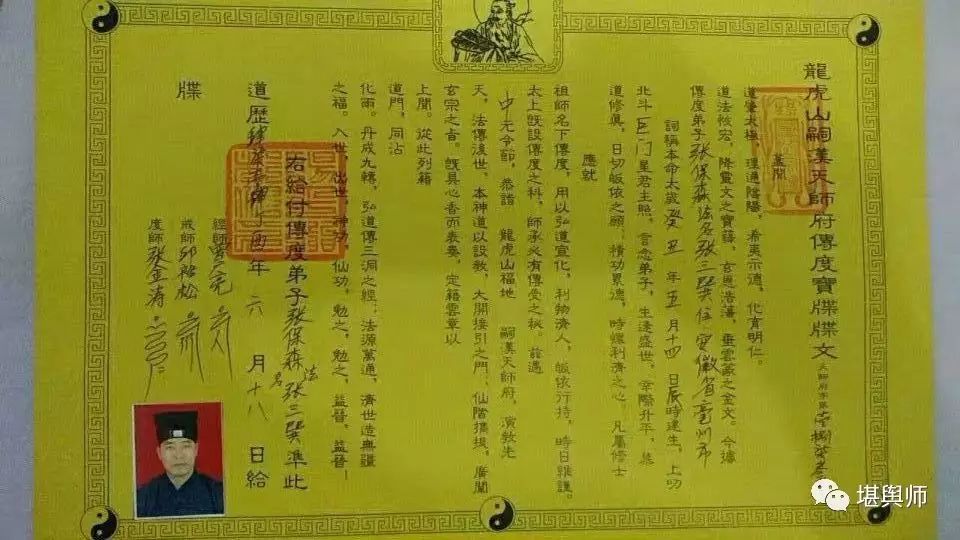 龍虎山嗣漢天師府傳度寶牒牒文
道肇太極，理通陰陽，希夷示道，化育明仁。
道法恢宏，降靈文之寶籙，玄恩浩蕩，垂雲篆之金文。今據
傳度弟子張保森法名張三巽住安徽省亳州市
詞稱本命太歲癸丑年五月十四日辰時建生，上叩
北斗巨门星君主照。言念弟子，生逢盛世，幸際升平，慕
道修真，日切皈依之願；積功累德，時堅利濟之心。凡屬修士
應就
祖師名下傳度，用以弘道宣化，利物濟人，皈依行持，時日維謹。
太上既設傳度之科，師承必有傳受之秋。茲遇
中元令節，恭詣 龍虎山福地 嗣漢天師府，演教先
天，法傳後世，本神道以設教，大開接引之門；仙階攜拔，廣闡
玄宗之旨。既具心香而表奏，定籍雲章以
上聞。從此列籍
道門，同沾
化雨。丹成九轉，弘道傳三洞之經；法源萬通，濟世造無疆
之福。入世、出世，神功、仙功，勉之，勉之，益晉，益晉！
右給付傳度弟子張保森法名張三巽準此
道歷 丁酉年六月十八日給
牒
經師
戒師邱裕松
度師張金濤
堪舆师